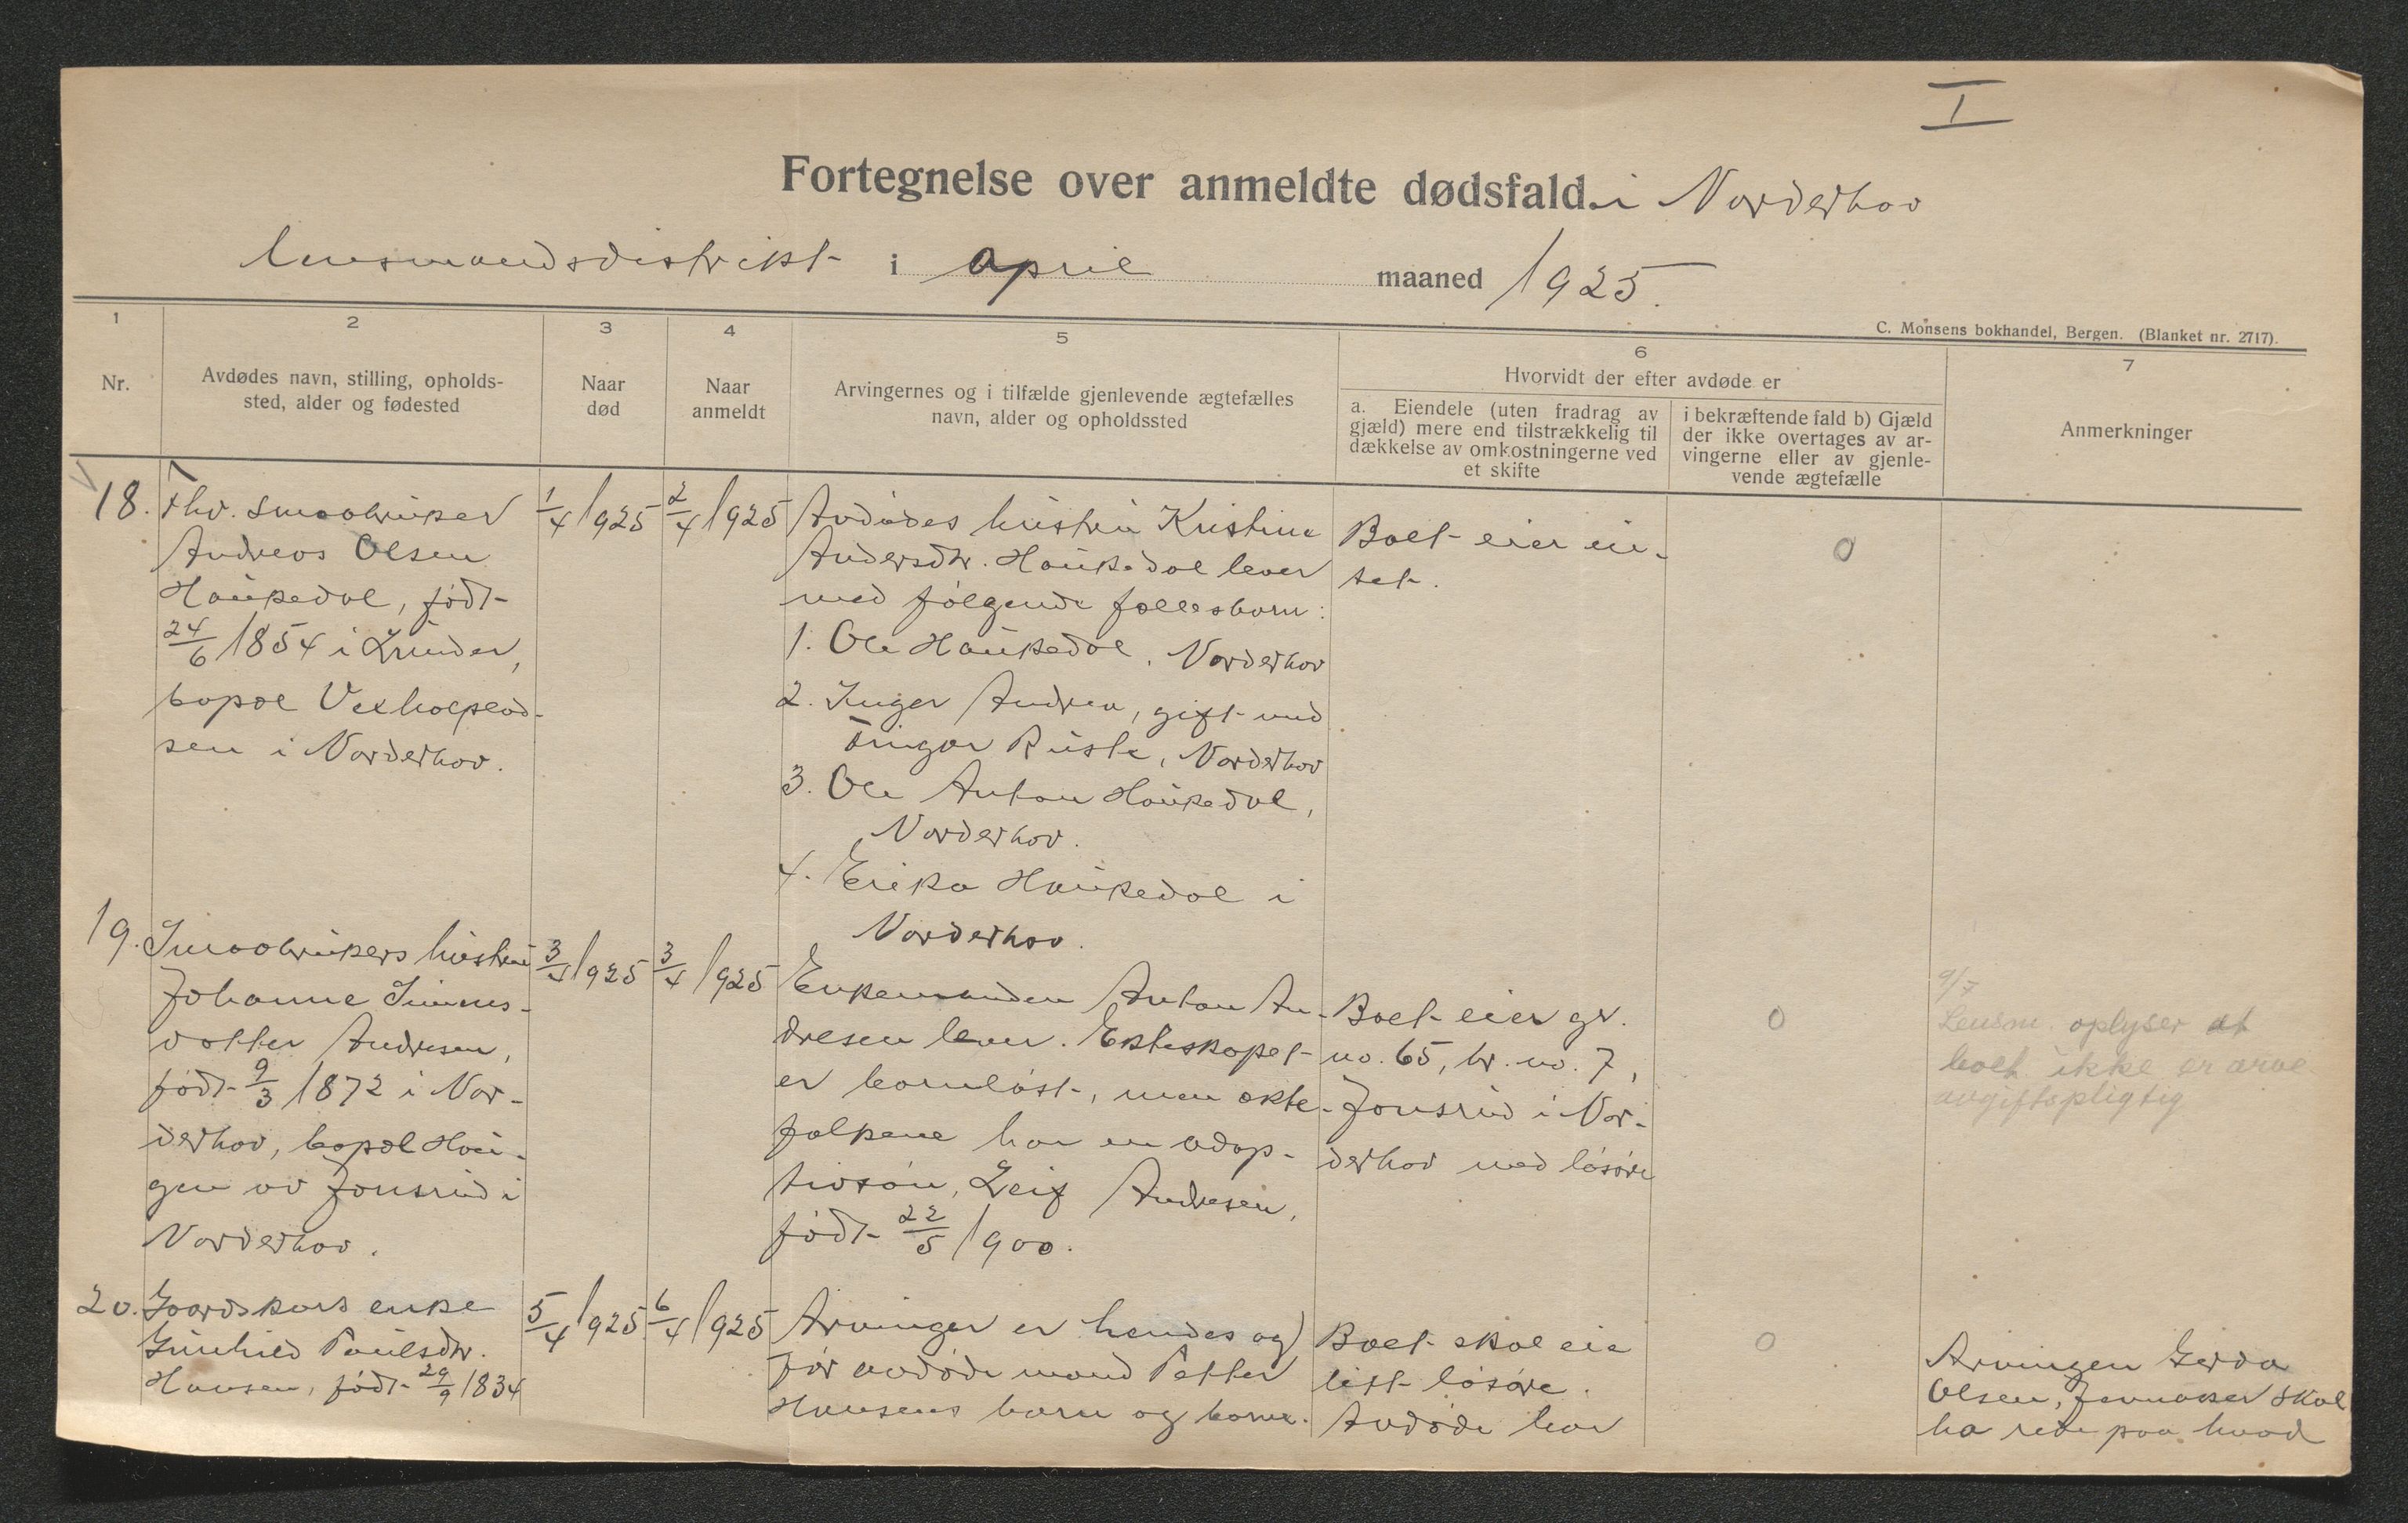 I
Fortegnelse over anmeldte dødsfald i Norderhov
lensmandsdistrikt i april maaned 1925.
C. Monsens bokhandel, Bergen. (Blanket nr. 2717).
1
2
3
4
5
6
7
Nr.
Avdødes navn, stilling, opholds-
sted, alder og fødested
Naar
død
Naar
anmeldt
Arvingernes og i tilfælde gjenlevende ægtefælles
navn, alder og opholdssted
Hvorvidt der efter avdøde er
a. Eiendele (uten fradrag av
gjæld) mere end tilstrækkelig til
dækkelse av omkostningerne ved
et skifte
i bekræftende fald b) Gjæld
der ikke overtages av ar-
vingerne eller av gjenle-
vende ægtefælle
Anmerkninger
18.
fhv. smaabruker
Andreas Olsen
Haukedal, født
24/6 1854 i Lunder,
bopæl
sen i Norderhov.
1/4 1925
2/4 1925
Avdødes hustru Kristine
Andersdtr. Haukedal lever
med følgende fællesbarn:
1. Ole Haukedal, Norderhov
2. Inger Andrea, gift med
Ingvar Ruste, Norderhov
3. Ole Anton Haukedal,
Norderhov.
4. Erika Haukedal i
Norderhov.
Boet eier in-
tet.
0
19.
Smaabrukers hustru
Johanne Simens-
datter Andresen,
født 9/3 1872 i Nor-
derhov, bopæl Hau-
gen av Jonsrud i
Norderhov.
3/4 1925
3/4 1925
Enkemanden Anton An-
dresen lever. Ekteskapet
er barnløst, men ekte-
folkene har en adop-
tivsøn, Leif Andresen,
født 22/5 1900.
Boet eier gr.
no. 65, br. no. 7,
Jonsrud i Nor-
derhov med løsøre
0
9/7
Lensm. oplyser at
boet ikke er arve
avgiftspligtig
20.
Gaardskars enke
Gunhild Paulsdtr.
Hansen, født 29/9 1834
5/4 1925
6/4 1925
Arvinger er hendes og
før avdøde mand Petter
Hansens barn og barne-
Boet skal eie
litt løsøre.
Avdøde har
0
Arvingen Gerda
Olsen, Jevnaker skal
ha rede paa hvad